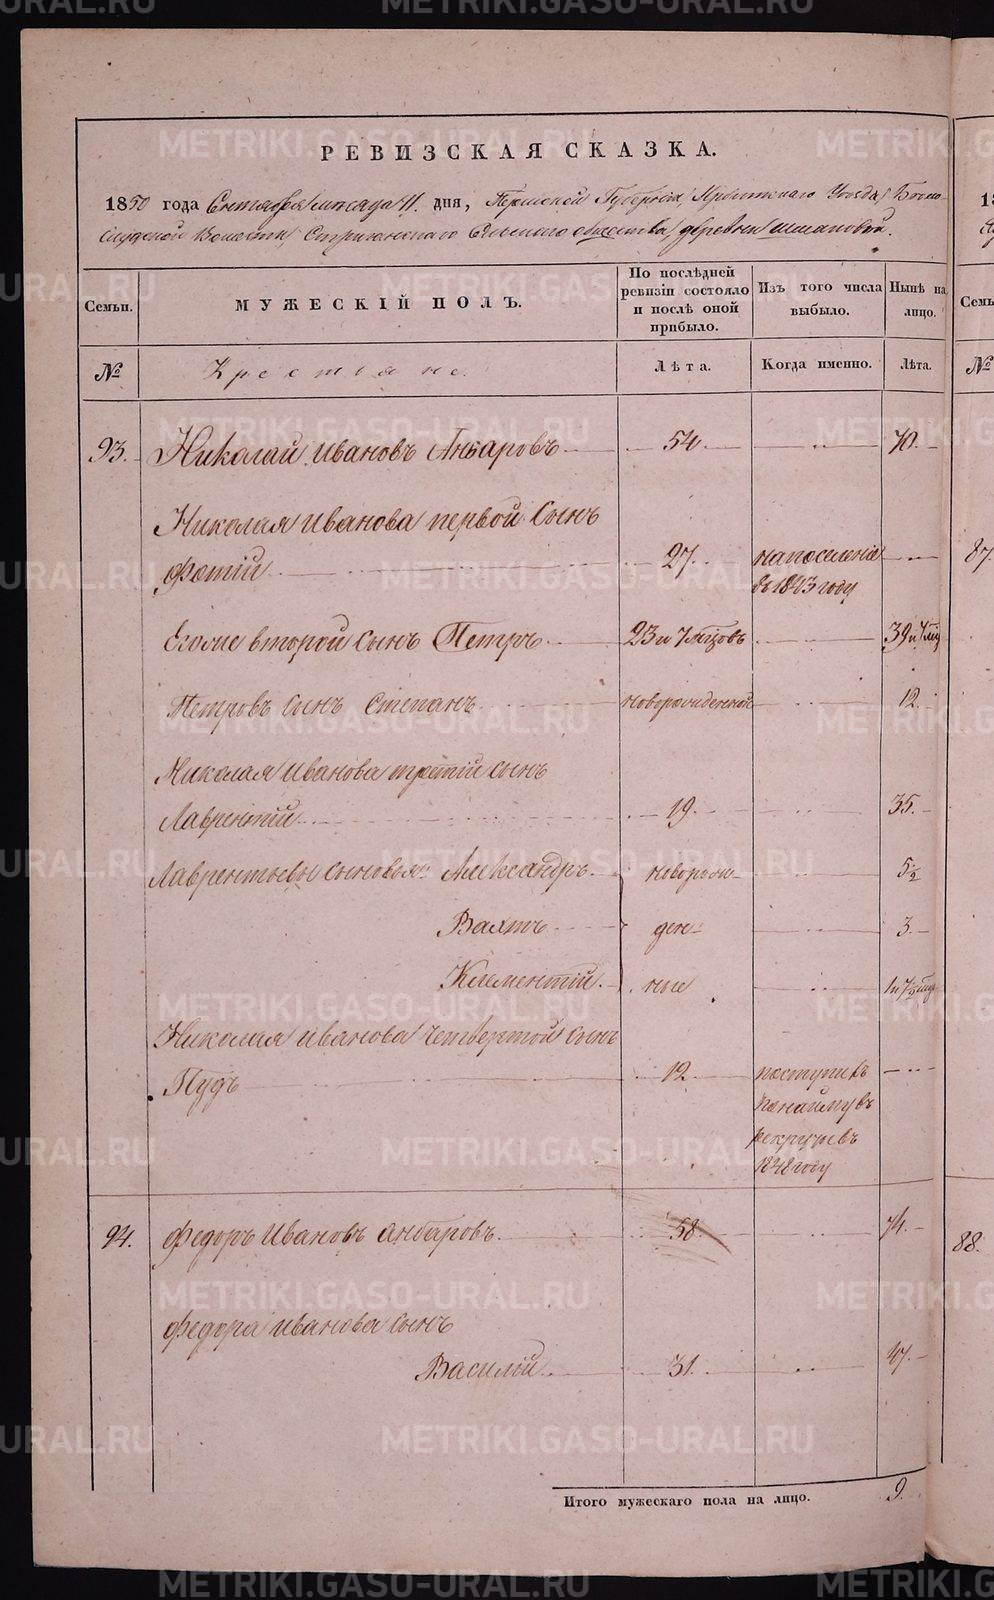 РЕВИЗСКАЯ СКАЗКА.
1850 года Сентября месяца 11. дня, Пермской Губернии, Ирбитского Уезда, Бело-
слудской Волости, Стриганского Сельского общества, деревни
Семьи.
МУЖЕСКІЙ ПОЛЪ.
По послѣдней ревизіи состояло и послѣ оной прибыло.
Изъ того числа выбыло.
Нынѣ на лицо.
№
Крестьяне.
Лѣта.
Когда именно.
Лѣта.
93. Николай Ивановъ Анбаровъ 54. 70.
Николая Иванова первой сынъ
Фотій 27. на поселеніе
въ 1843 году
Его же второй сынъ Петръ 23 и 7 мѣсяцовъ 39 и 7 мѣ
Петровъ сынъ Степанъ новорожденной 12.
Николая Иванова третій сынъ
Лаврентій 19. 35.
Лаврентьевы сыновья: Александръ новорож- 5½
ден- 3.
Клементій ные
Николая Иванова четвертой сынъ
Пудъ 12 поступилъ
по найму въ
рекруты въ
1848 году
94. Федоръ Ивановъ Анбаровъ 58 74.
Федора Иванова сынъ
Василій 31. 47.
Итого мужескаго пола на лицо. 9.
1
Семь
№
87.
88.
METRIKI.GASO-URAL.RU